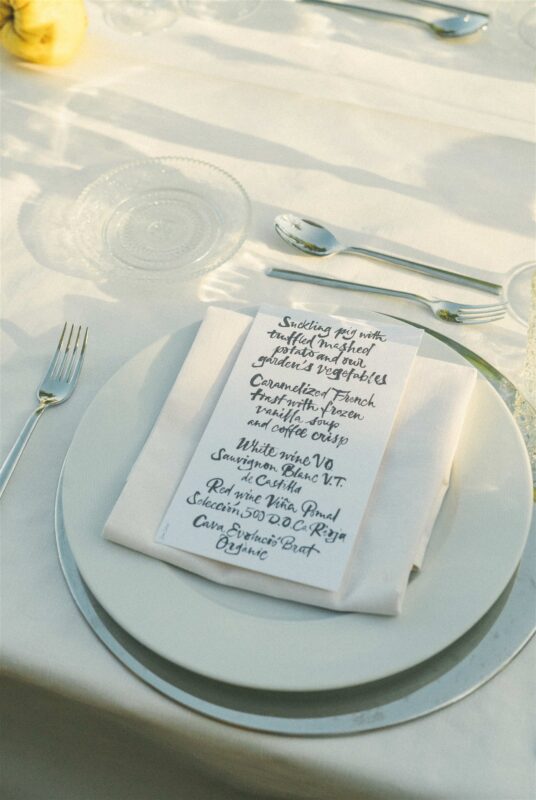 Suckling pig with
truffled mashed
potato and our
garden's vegetables
Caramelized French
Toast with frozen
vanilla soup
and coffee crisp
White wine VO
Sauvignon Blanc V.T.
de Castilla
Red wine Viña Pomal
Selección 500 D.O.Ca Rioja
Cava Evolució Brut
Organic